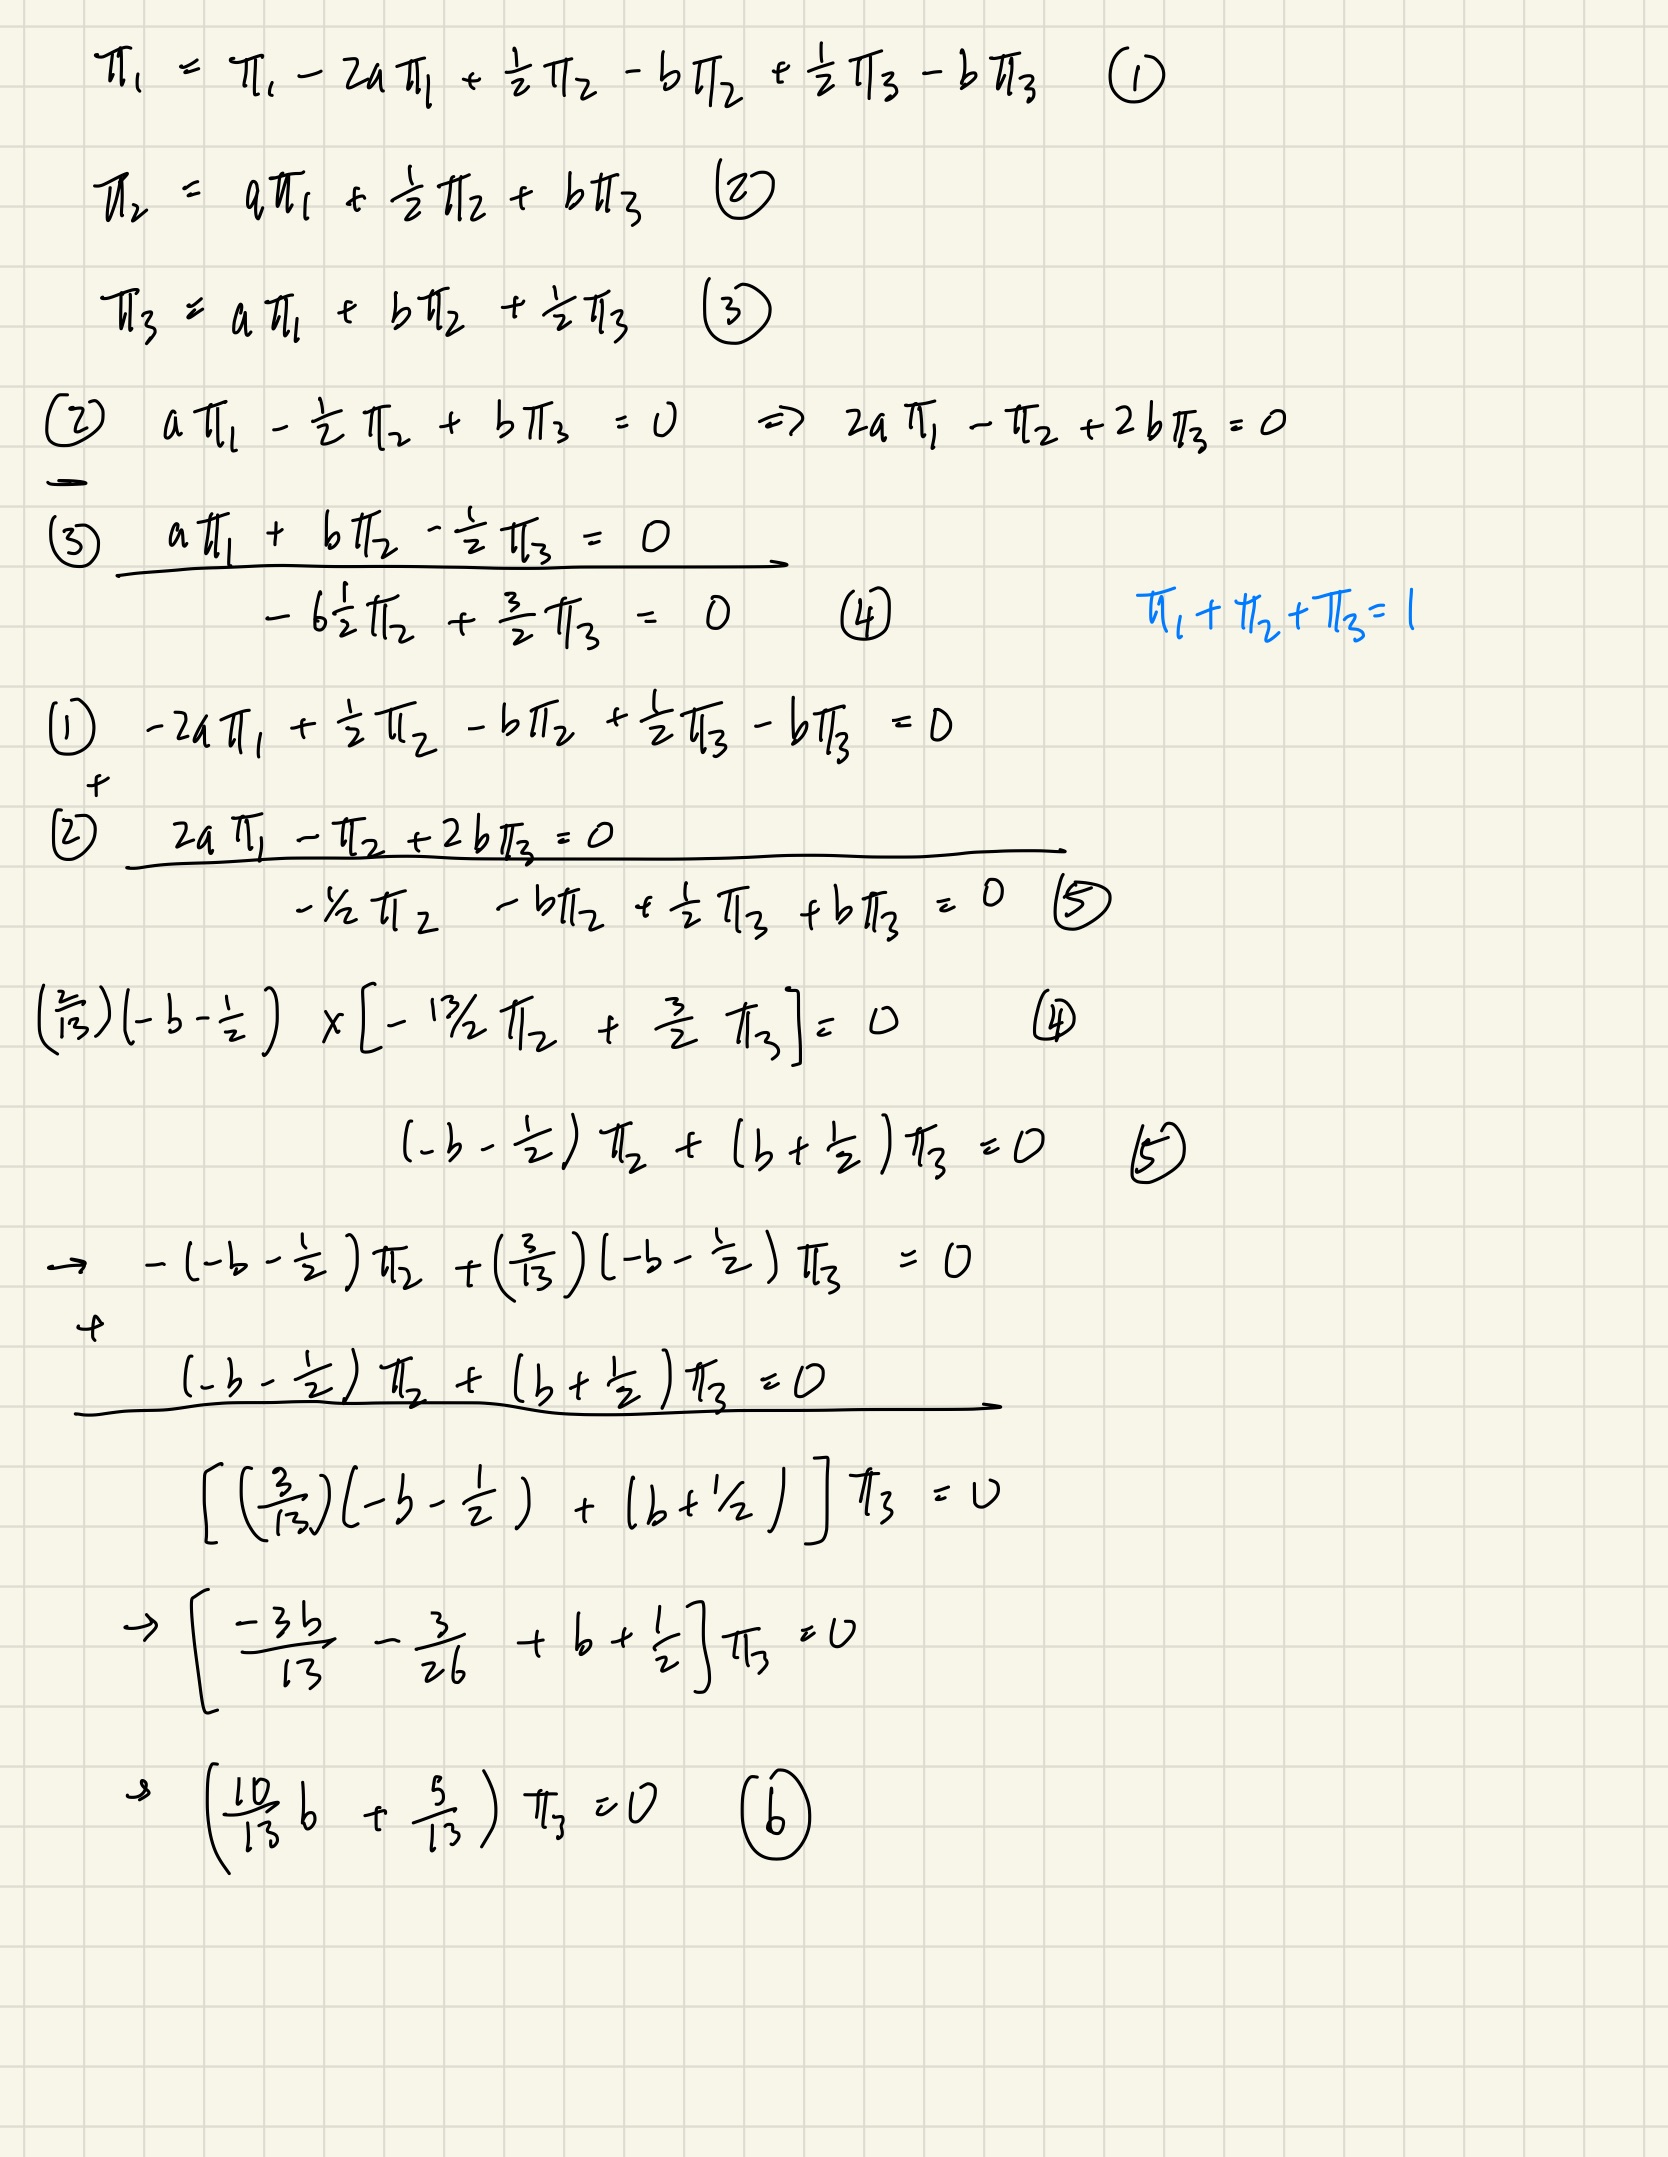 π₁ = π₁ - 2aπ₁ + ½π₂ - bπ₂ + ½π₃ - bπ₃ ①
π₂ = aπ₁ + ½π₂ + bπ₃ ②
π₃ = aπ₁ + bπ₂ + ½π₃ ③
② aπ₁ - ½π₂ + bπ₃ = 0 ⇒ 2aπ₁ - π₂ + 2bπ₃ = 0
-
③ aπ₁ + bπ₂ - ½π₃ = 0
- 6½π₂ + 3/2 π₃ = 0 ④ π₁ + π₂ + π₃ = 1
① -2aπ₁ + ½π₂ - bπ₂ + ½π₃ - bπ₃ = 0
+
② 2aπ₁ - π₂ + 2bπ₃ = 0
- ½π₂ - bπ₂ + ½π₃ + bπ₃ = 0 ⑤
(2/13)(-b - ½) × [- 13/2 π₂ + 3/2 π₃] = 0 ④
(-b - ½)π₂ + (b + ½)π₃ = 0 ⑤
→ -(-b - ½)π₂ + (3/13)(-b - ½)π₃ = 0
+
(-b - ½)π₂ + (b + ½)π₃ = 0
[(3/13)(-b - ½) + (b + ½)]π₃ = 0
→ [-3b/13 - 3/26 + b + ½]π₃ = 0
→ (10/13 b + 5/13)π₃ = 0 ⑥